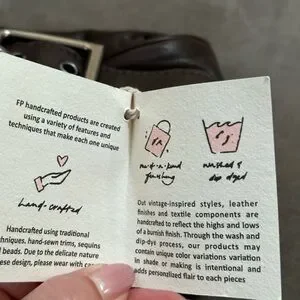 FP handcrafted products are created
using a variety of features and
techniques that make each one unique
hand-crafted
Handcrafted using traditional
techniques, hand-sewn trims, sequins
beads. Due to the delicate nature
these design, please wear with
FP
one-of-a-kind
finishing
washed &
dip dyed
Our vintage-inspired styles, leather
finishes and textile components are
handcrafted to reflect the highs and lows
of a burnish finish. Through the wash and
dip-dye process, our products may
contain unique color variations variation
in shade or making is intentional and
adds personalized flair to each pieces